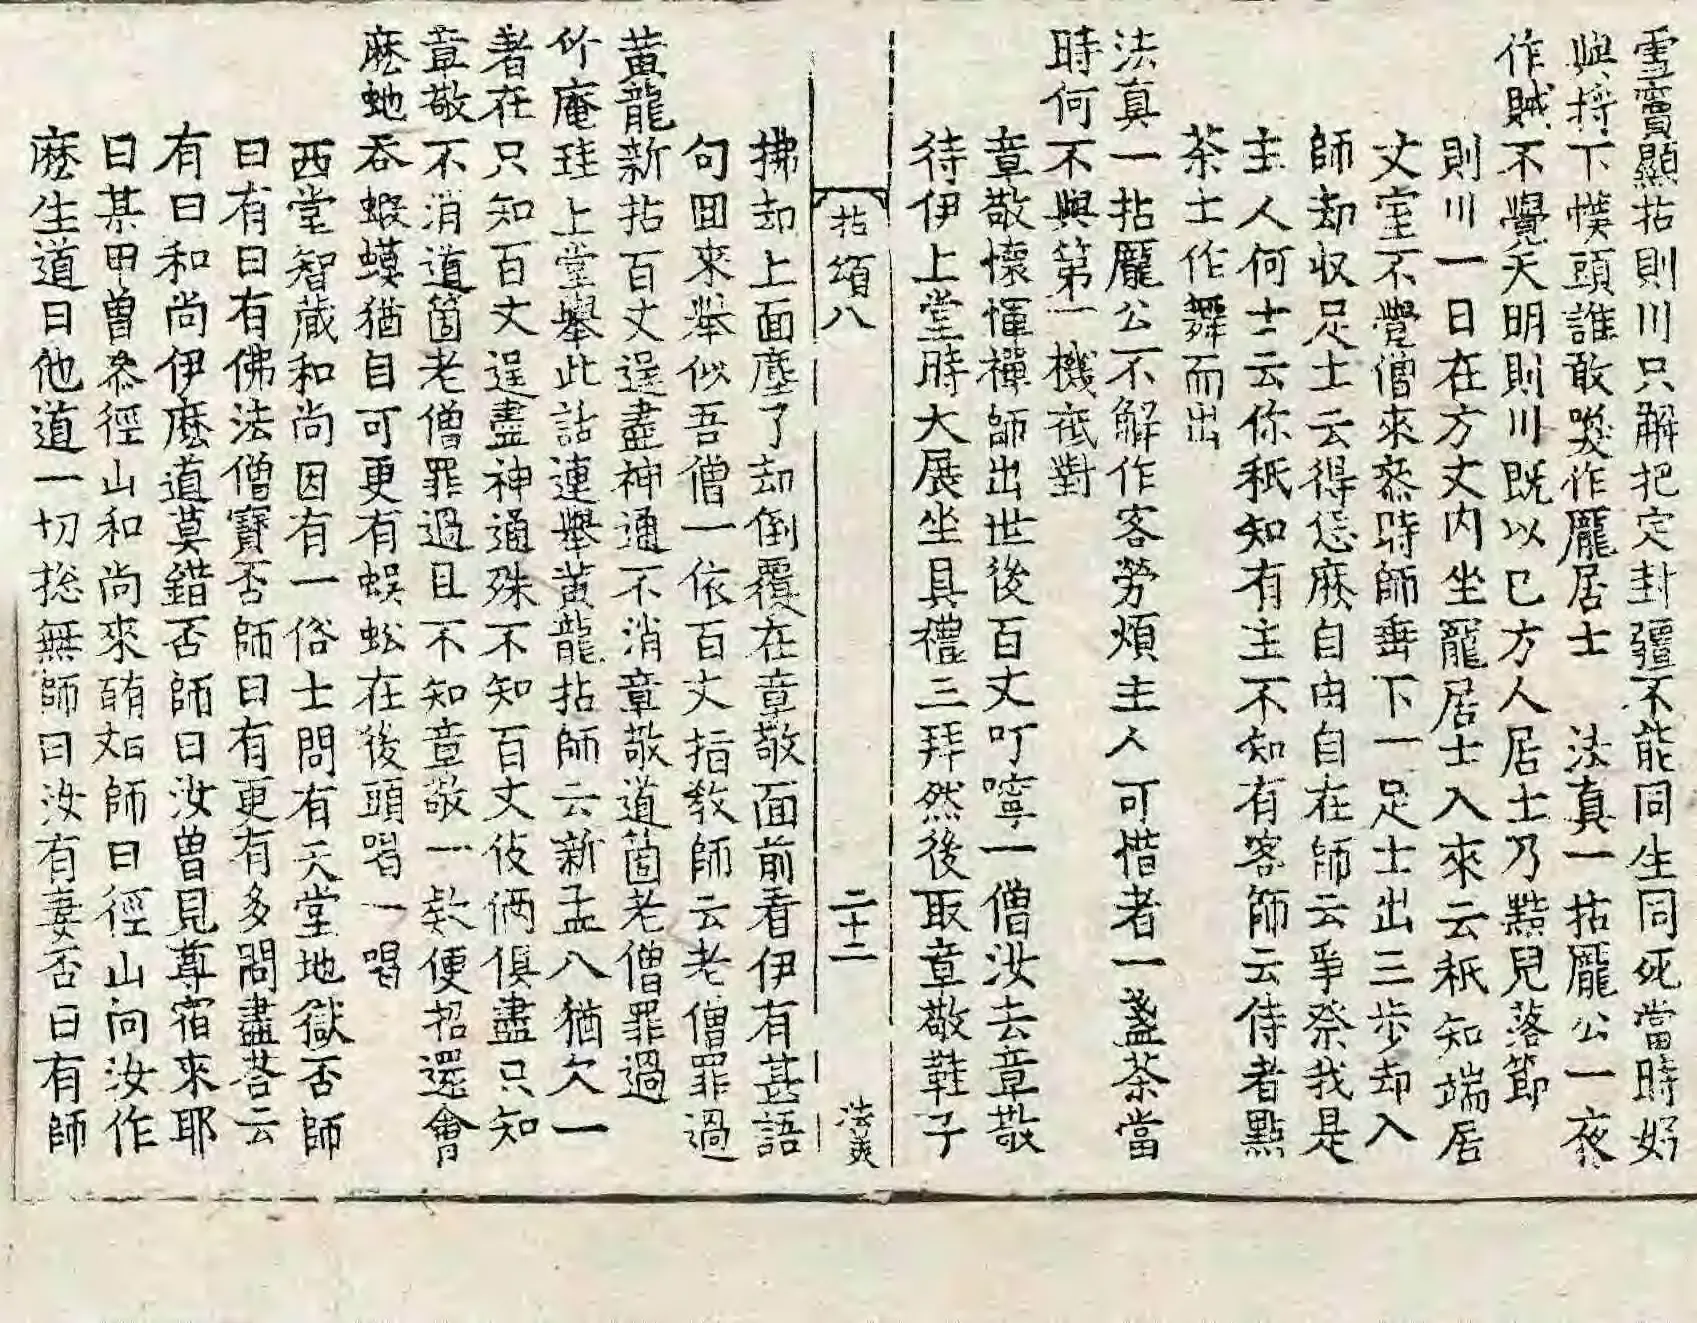 雪竇顯拈則川只解把定封疆不能同生同死當時好
與捋下幞頭誰敢喚作龐居士　法真一拈龐公一夜
作賊不覺天明則川旣以己方人居士乃㸃兒落節
則川一日在方丈内坐龐居士入來云祇知端居
丈室不覺僧來叅時師垂下一足士出三步却入
師却収足士云得恁麽自由自在師云爭奈我是
主人何士云你祇知有主不知有客師云侍者㸃
茶士作舞而出
法真一拈龐公不解作客勞煩主人可惜者一盞茶當
時何不與第一機祗對
章敬懷惲禪師出世後百丈叮嚀一僧汝去章敬
待伊上堂時大展坐具禮三拜然後取章敬鞋子
拈頌八　二十二　法美
拂却上面塵了却倒覆在章敬面前看伊有甚語
句囬來舉似吾僧一依百丈指教師云老僧罪過
黄龍新拈百丈逞盡神通不消章敬道箇老僧罪過
介庵珪上堂舉此話連舉黄龍拈師云新孟八猶欠一
著在只知百丈逞盡神通殊不知百丈伎倆俱盡只知
章敬不消道箇老僧罪過且不知章敬一欵便招還會
麽虵吞蝦蟇猶自可更有蜈蚣在後頭喝一喝
西堂智蔵和尚因有一俗士問有天堂地獄否師
曰有曰有佛法僧寶否師曰有更有多問盡荅云
有曰和尚伊麽道莫錯否師曰汝曽見尊宿來耶
曰某甲曽叅徑山和尚來師曰徑山向汝作
麽生道曰他道一切㧾無師曰汝有妻否曰有師